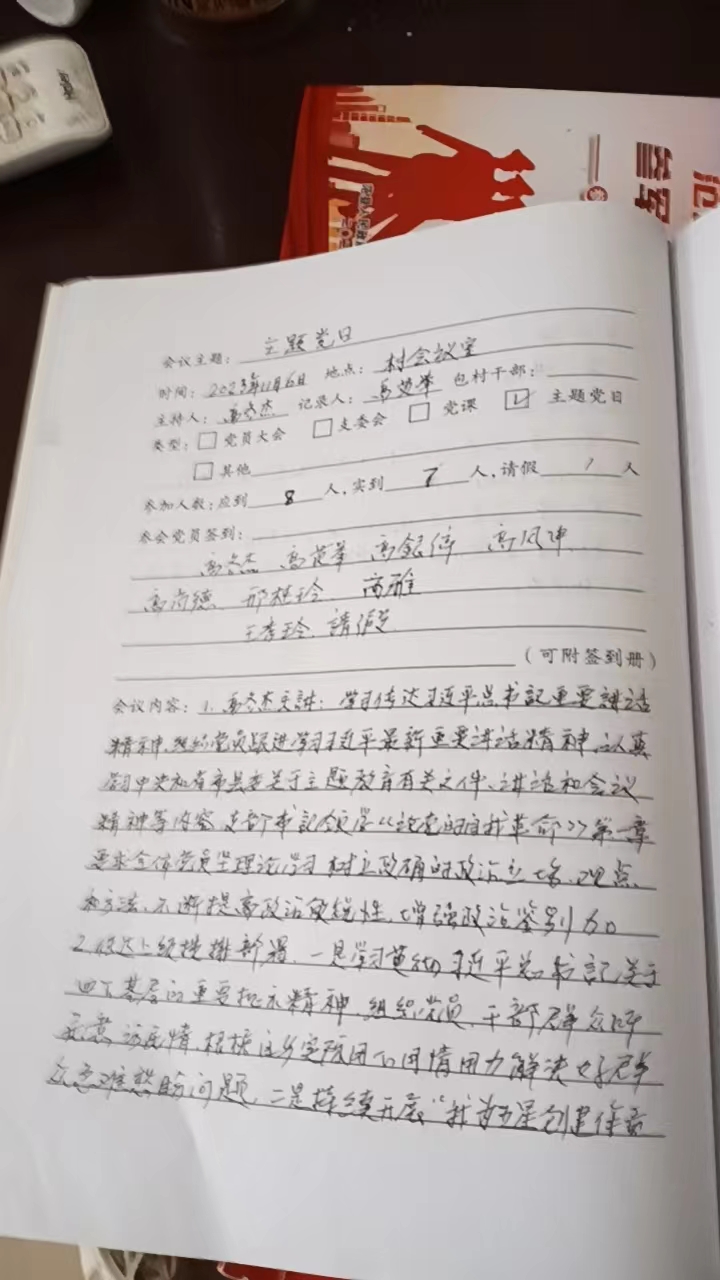 会议主题: 主题党日
时间: 2023年11月6日 地点: 村会议室
主持人: 高冬杰 记录人: 高苊举 包村干部:
类型: □ 党员大会 □ 支委会 □ 党课 ☑ 主题党日
□ 其他
参加人数: 应到 8 人, 实到 7 人, 请假 1 人
参会党员签到:
高冬杰 高苊举 高银倚 高风坤
高尚德 邢桂玲 高雅
王孝玲 請假
(可附签到册)
会议内容: 1. 高冬杰主讲: 学习传达习近平总书記重要講话
精神, 组织党员跟进学习习近平最新重要讲话精神, 认真
学习中央和省市县委关于主题教育有关文件、讲话和会议
精神等内容, 支部书記领学《论党的自我革命》第一章
要求全体党员坚理论学习 树立政确的政治立场、观点、
和方法, 不断提高政治敏锐性, 增强政治鉴别力。
2. 传达上级安排部署, 一是学习贯彻习近平总书記关于
四下基层的重要批示精神, 组织党员、干部群众听
民意 访民情, 根据这乡实际用心用情用力解决好群
众急难愁盼问题, 二是持续开展"我为五星创建作贡